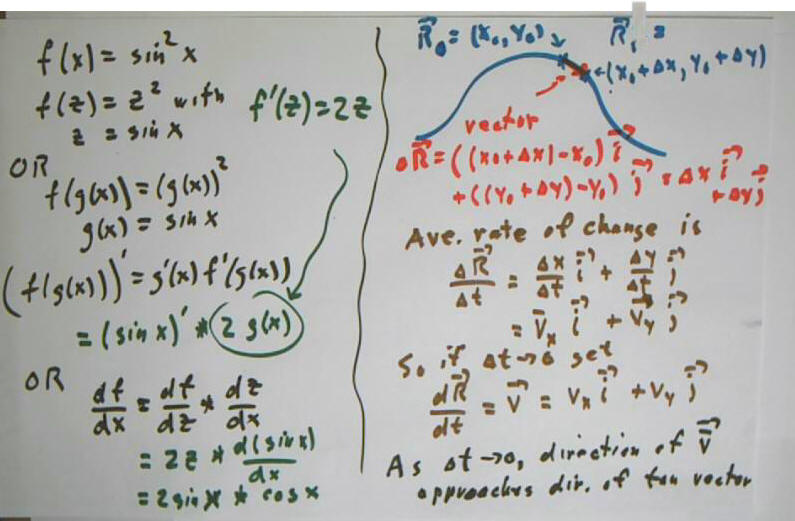 f(x) = sin² x
f(z) = z² with
z = sin x
f'(z) = 2z
OR
f(g(x)) = (g(x))²
g(x) = sin x
(f(g(x)))' = g'(x) f'(g(x))
= (sin x)' * 2 g(x)
OR
df/dx = df/dz * dz/dx
= 2z * d(sin x)/dx
= 2 sin x * cos x
R⃗₀ = (x₀, y₀)
R⃗₁ =
(x₀ + Δx, y₀ + Δy)
vector
ΔR⃗ = ((x₀ + Δx) - x₀) i⃗
+ ((y₀ + Δy) - y₀) j⃗ = Δx i⃗
+ Δy j⃗
Ave. rate of change is
ΔR⃗/Δt = Δx/Δt i⃗ + Δy/Δt j⃗
= v̄ₓ i⃗ + v̄ᵧ j⃗
So if Δt → 0 get
dR⃗/dt = v⃗ = vₓ i⃗ + vᵧ j⃗
As Δt → 0, direction of v̄⃗
approaches dir. of tan vector